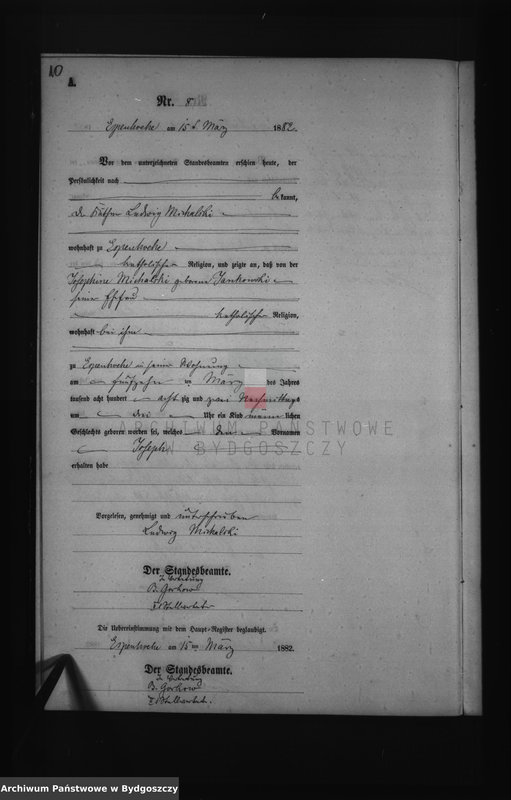 10
A.
Nr. 8
am 15 t. März 1882.
Vor dem unterzeichneten Standesbeamten erschien heute, der
Persönlichkeit nach
bekannt,
de Käthner Ludwig Michalski
wohnhaft zu
katholischer Religion, und zeigte an, daß von der
Josephine Michalski geborene Jankowski
seiner Ehefrau
katholischer Religion,
wohnhaft bei ihm
zu in seiner Wohnung
am fünfzehn ten März des Jahres
tausend acht hundert acht zig und zwei Nachmittags
um drei Uhr ein Kind männlichen
Geschlechts geboren worden sei, welches den Vornamen
Joseph
erhalten habe
Vorgelesen, genehmigt und unterschrieben
Ludwig Michalski
Der Standesbeamte.
In Vertretung
B. Gorkow
Die Uebereinstimmung mit dem Haupt-Register beglaubigt.
am 15 ten März 1882.
Der Standesbeamte.
In Vertretung
B. Gorkow
ARCHIWUM PAŃSTWOWE
W BYDGOSZCZY
Archiwum Państwowe w Bydgoszczy